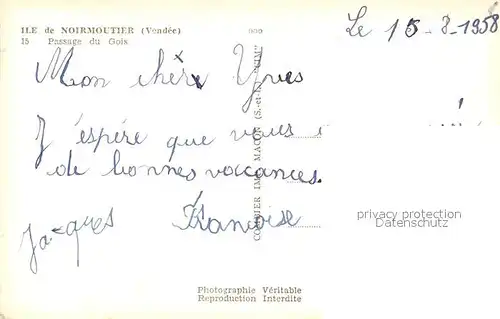 ILE de NOIRMOUTIER (Vendée)
15 Passage du Gois
Le 15-8-1958
Mon chère Yves
J'éspére que vous
de bonnes vaccances.
Jacques Francoise
COMBIER IMP. MACON (S.-et-L.) "CIM"
privacy protection
Datenschutz
Photographie Véritable
Reproduction Interdite